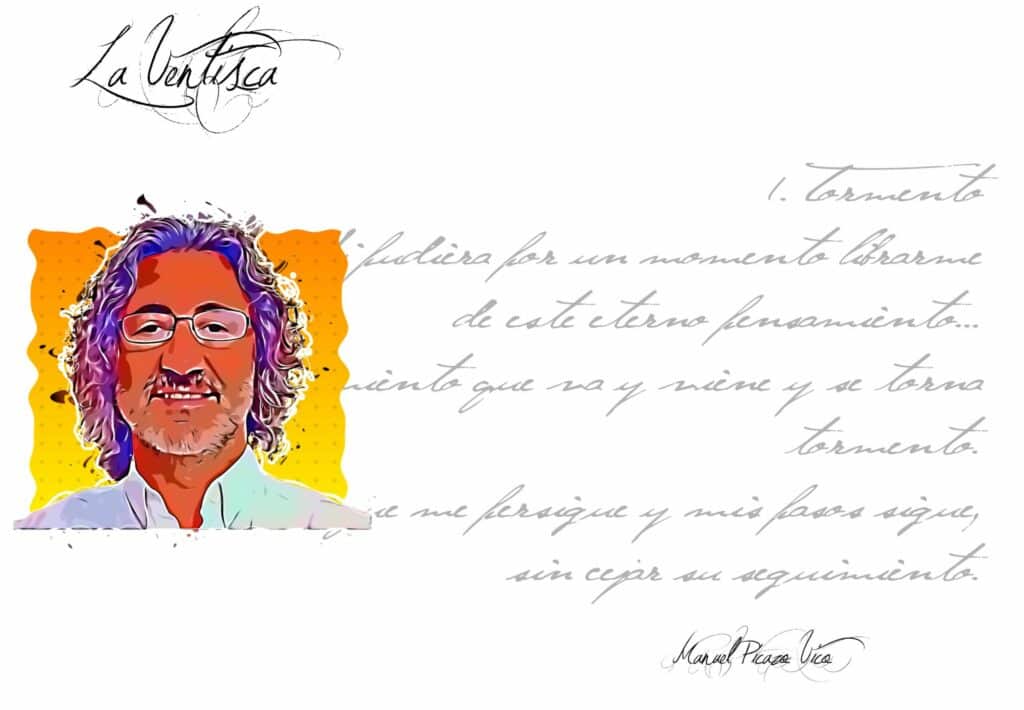 La Ventisca
1. tormento
pudiera por un momento librarme
de este eterno pensamiento...
que va y viene y se torna
tormento.
me persigue y mis pasos sigue,
sin cejar su seguimiento.
Manuel Picazo Vico